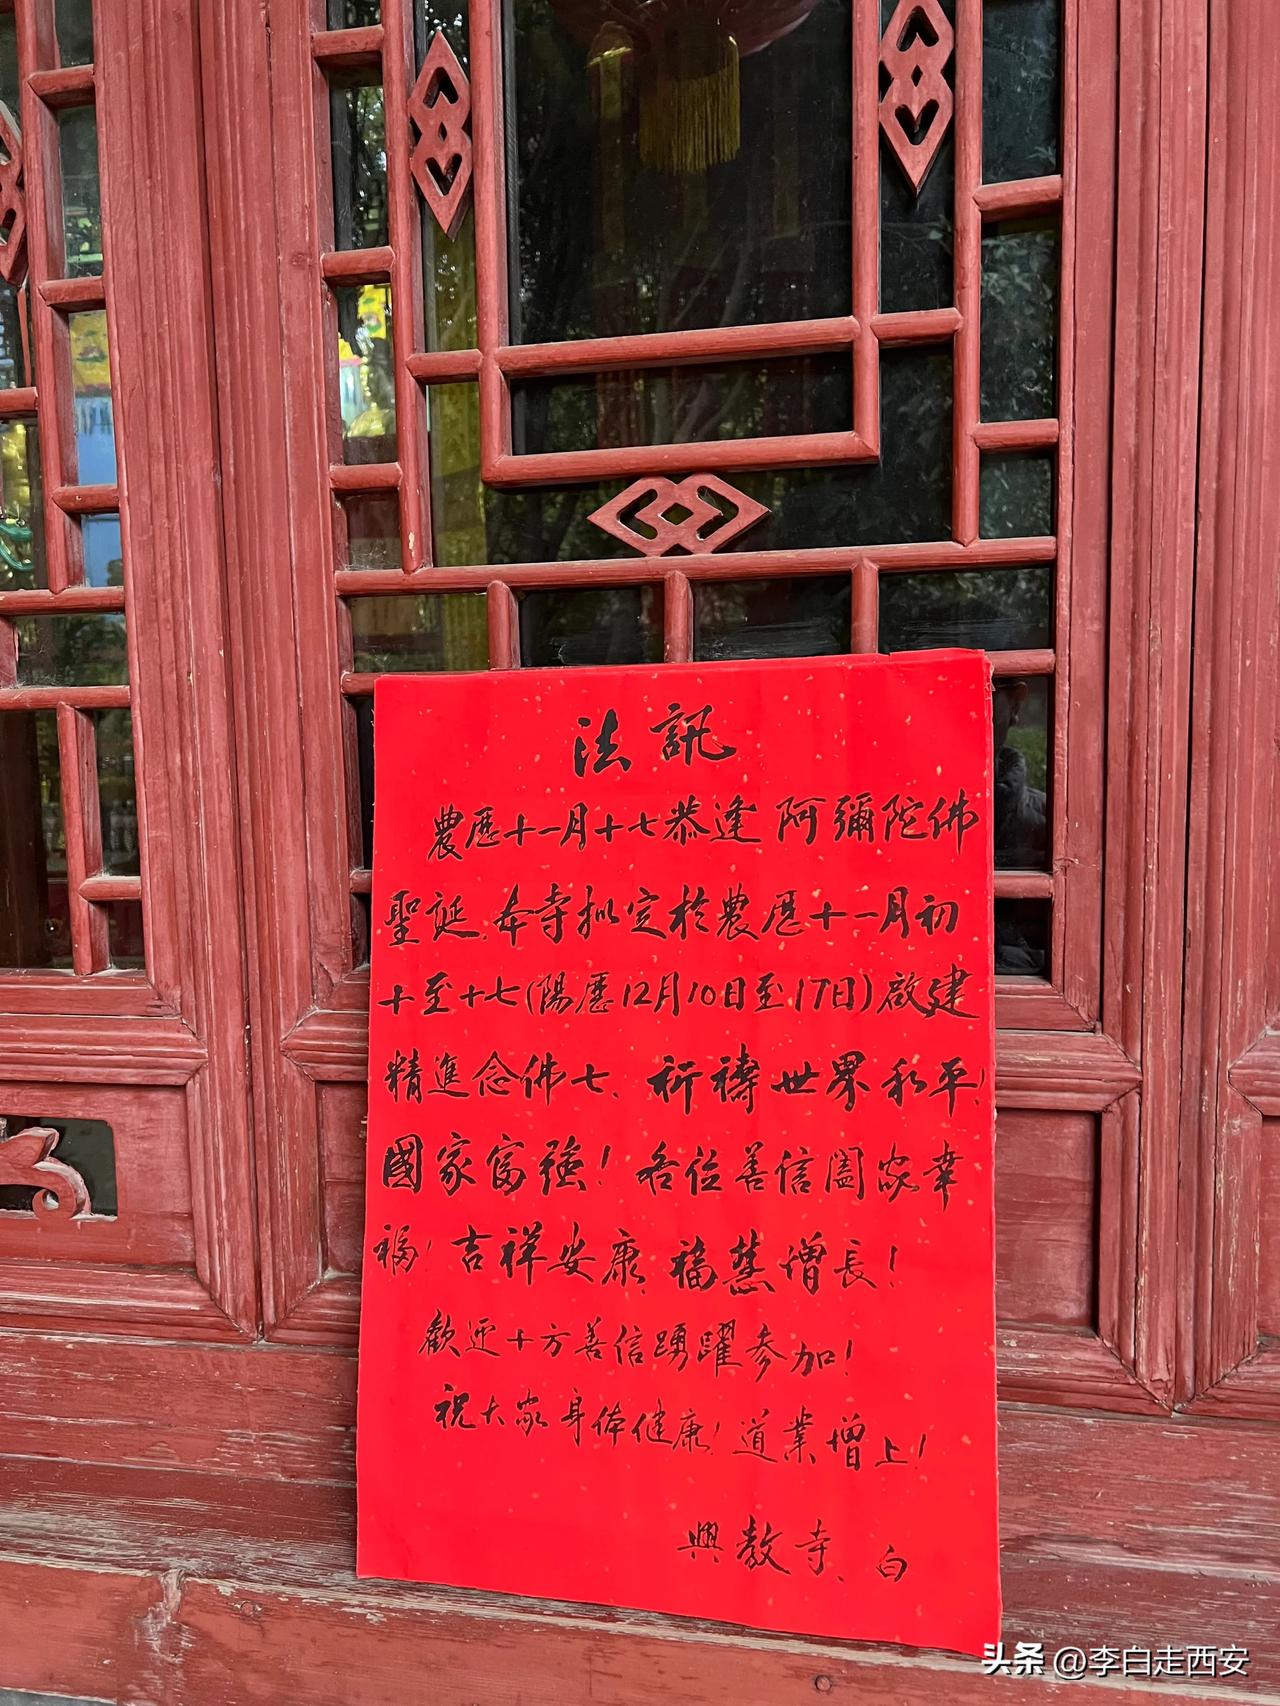 法訊
農歷十一月十七恭逢阿彌陀佛
聖誕、本寺拟定於農歷十一月初
十至十七(陽歷12月10日至17日)啟建
精進念佛七、祈禱世界和平!
國家富強!各位善信闔家幸
福!吉祥安康、福慧增長!
歡迎十方善信踴躍參加!
祝大家身体健康!道業增上!
興教寺、白
头条 @李白走西安